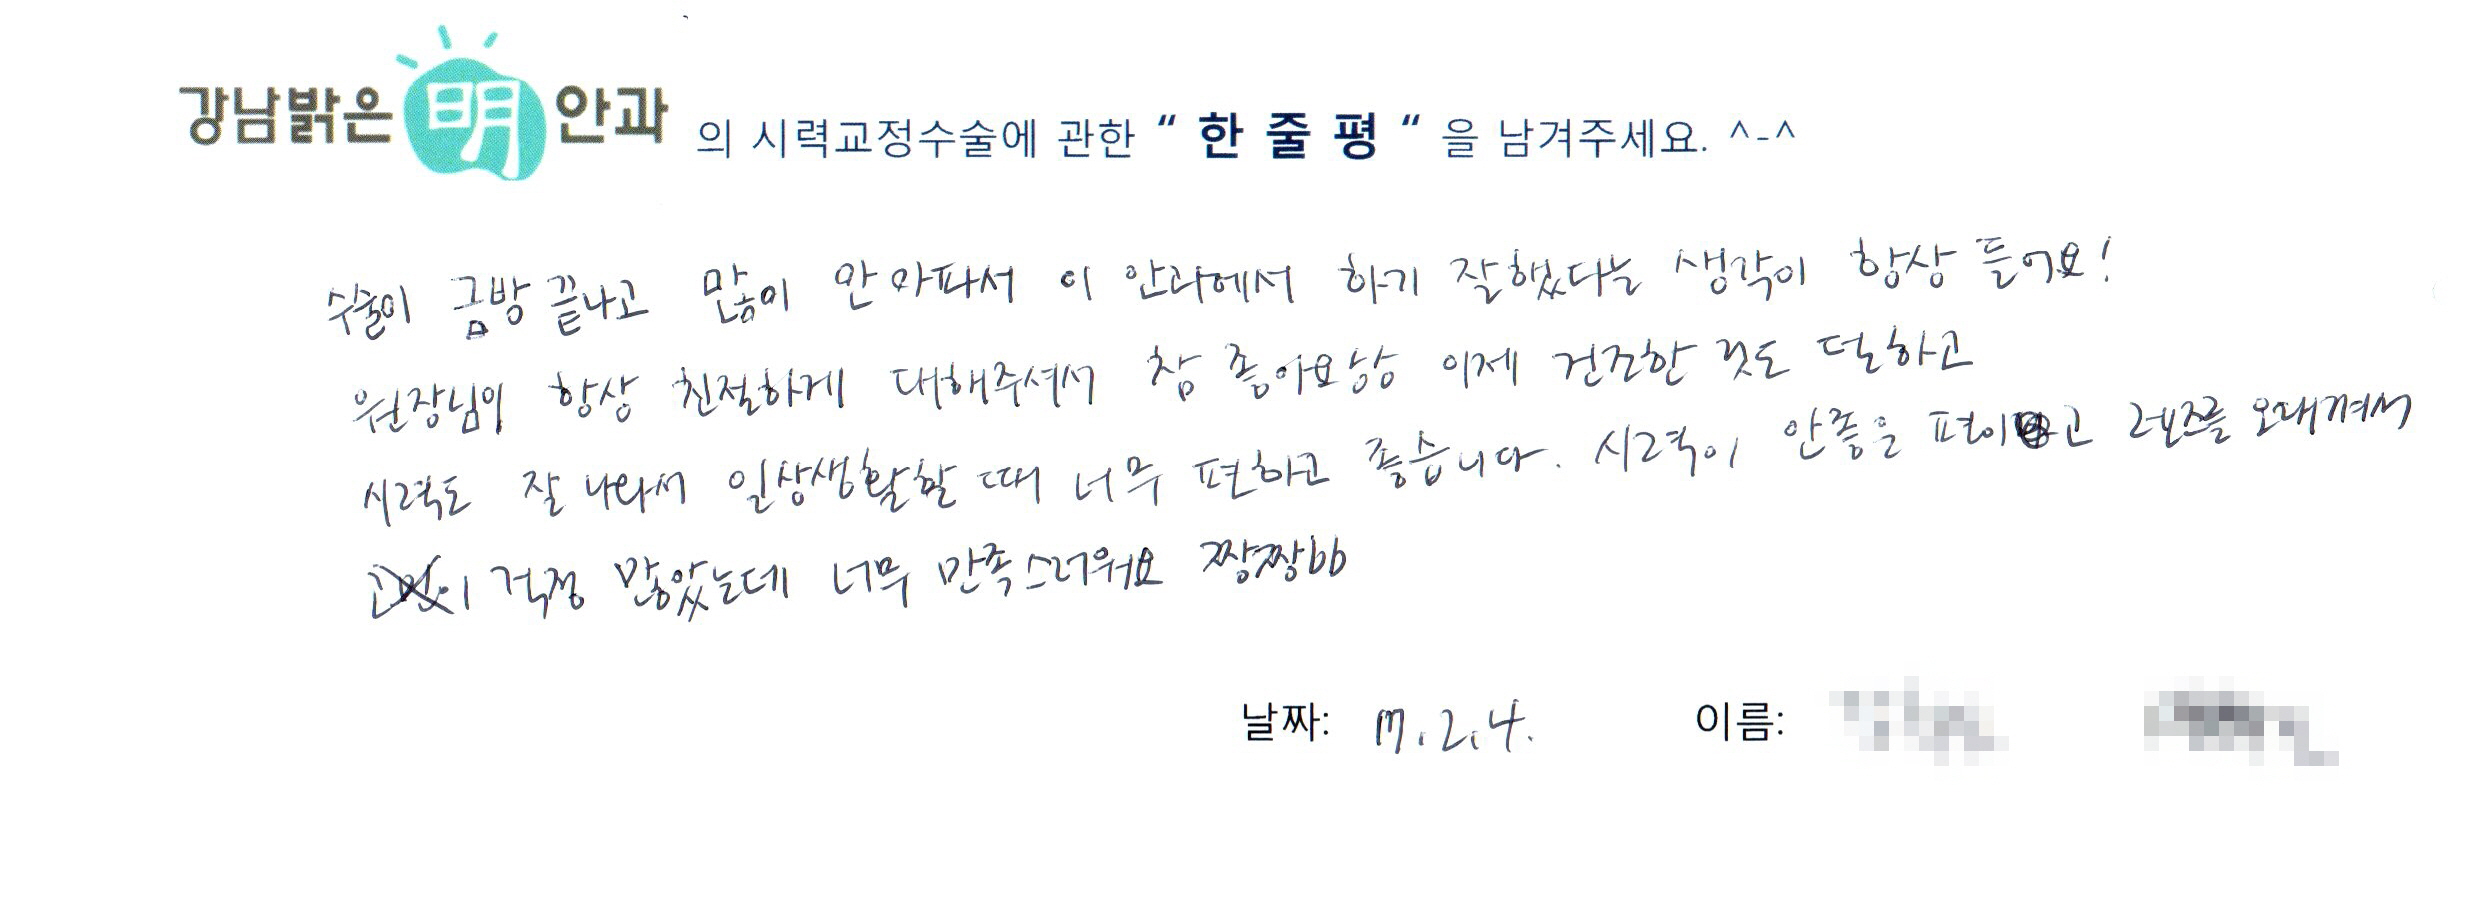 강남밝은 明 안과 의 시력교정수술에 관한 “ 한 줄 평 “ 을 남겨주세요. ^-^
수술이 금방 끝나고 많이 안 아파서 이 안과에서 하기 잘했다는 생각이 항상 들어요!
원장님이 항상 친절하게 대해주셔서 참 좋아요 이제 건조한 것도 덜하고
시력도 잘 나와서 일상생활할 때 너무 편하고 좋습니다. 시력이 안좋을 편이고 렌즈를 오래껴서
걱정 많았는데 너무 만족스러워요 짱짱bb
날짜: 17.2.4. 이름: